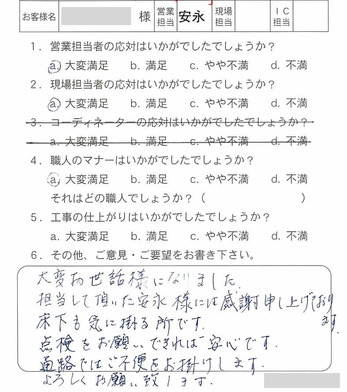 お客様名 様 営業担当 安永 現場担当 IC担当
1．営業担当者の応対はいかがでしたでしょうか？
a. 大変満足 b. 満足 c. やや不満 d. 不満
2．現場担当者の応対はいかがでしたでしょうか？
a. 大変満足 b. 満足 c. やや不満 d. 不満
3．コーディネーターの応対はいかがでしたでしょうか？
a. 大変満足 b. 満足 c. やや不満 d. 不満
4．職人のマナーはいかがでしたでしょうか？
a. 大変満足 b. 満足 c. やや不満 d. 不満
それはどの職人でしょうか？（ ）
5．工事の仕上がりはいかがでしたでしょうか？
a. 大変満足 b. 満足 c. やや不満 d. 不満
6．その他、ご意見・ご要望をお書き下さい。
大変お世話様になりました.
担当して頂いた安永様には感謝申し上げております.
床下も気に掛る所です.
点検をお願いできれば安心です.
通路ではご不便をお掛けします.
よろしくお願い致します.